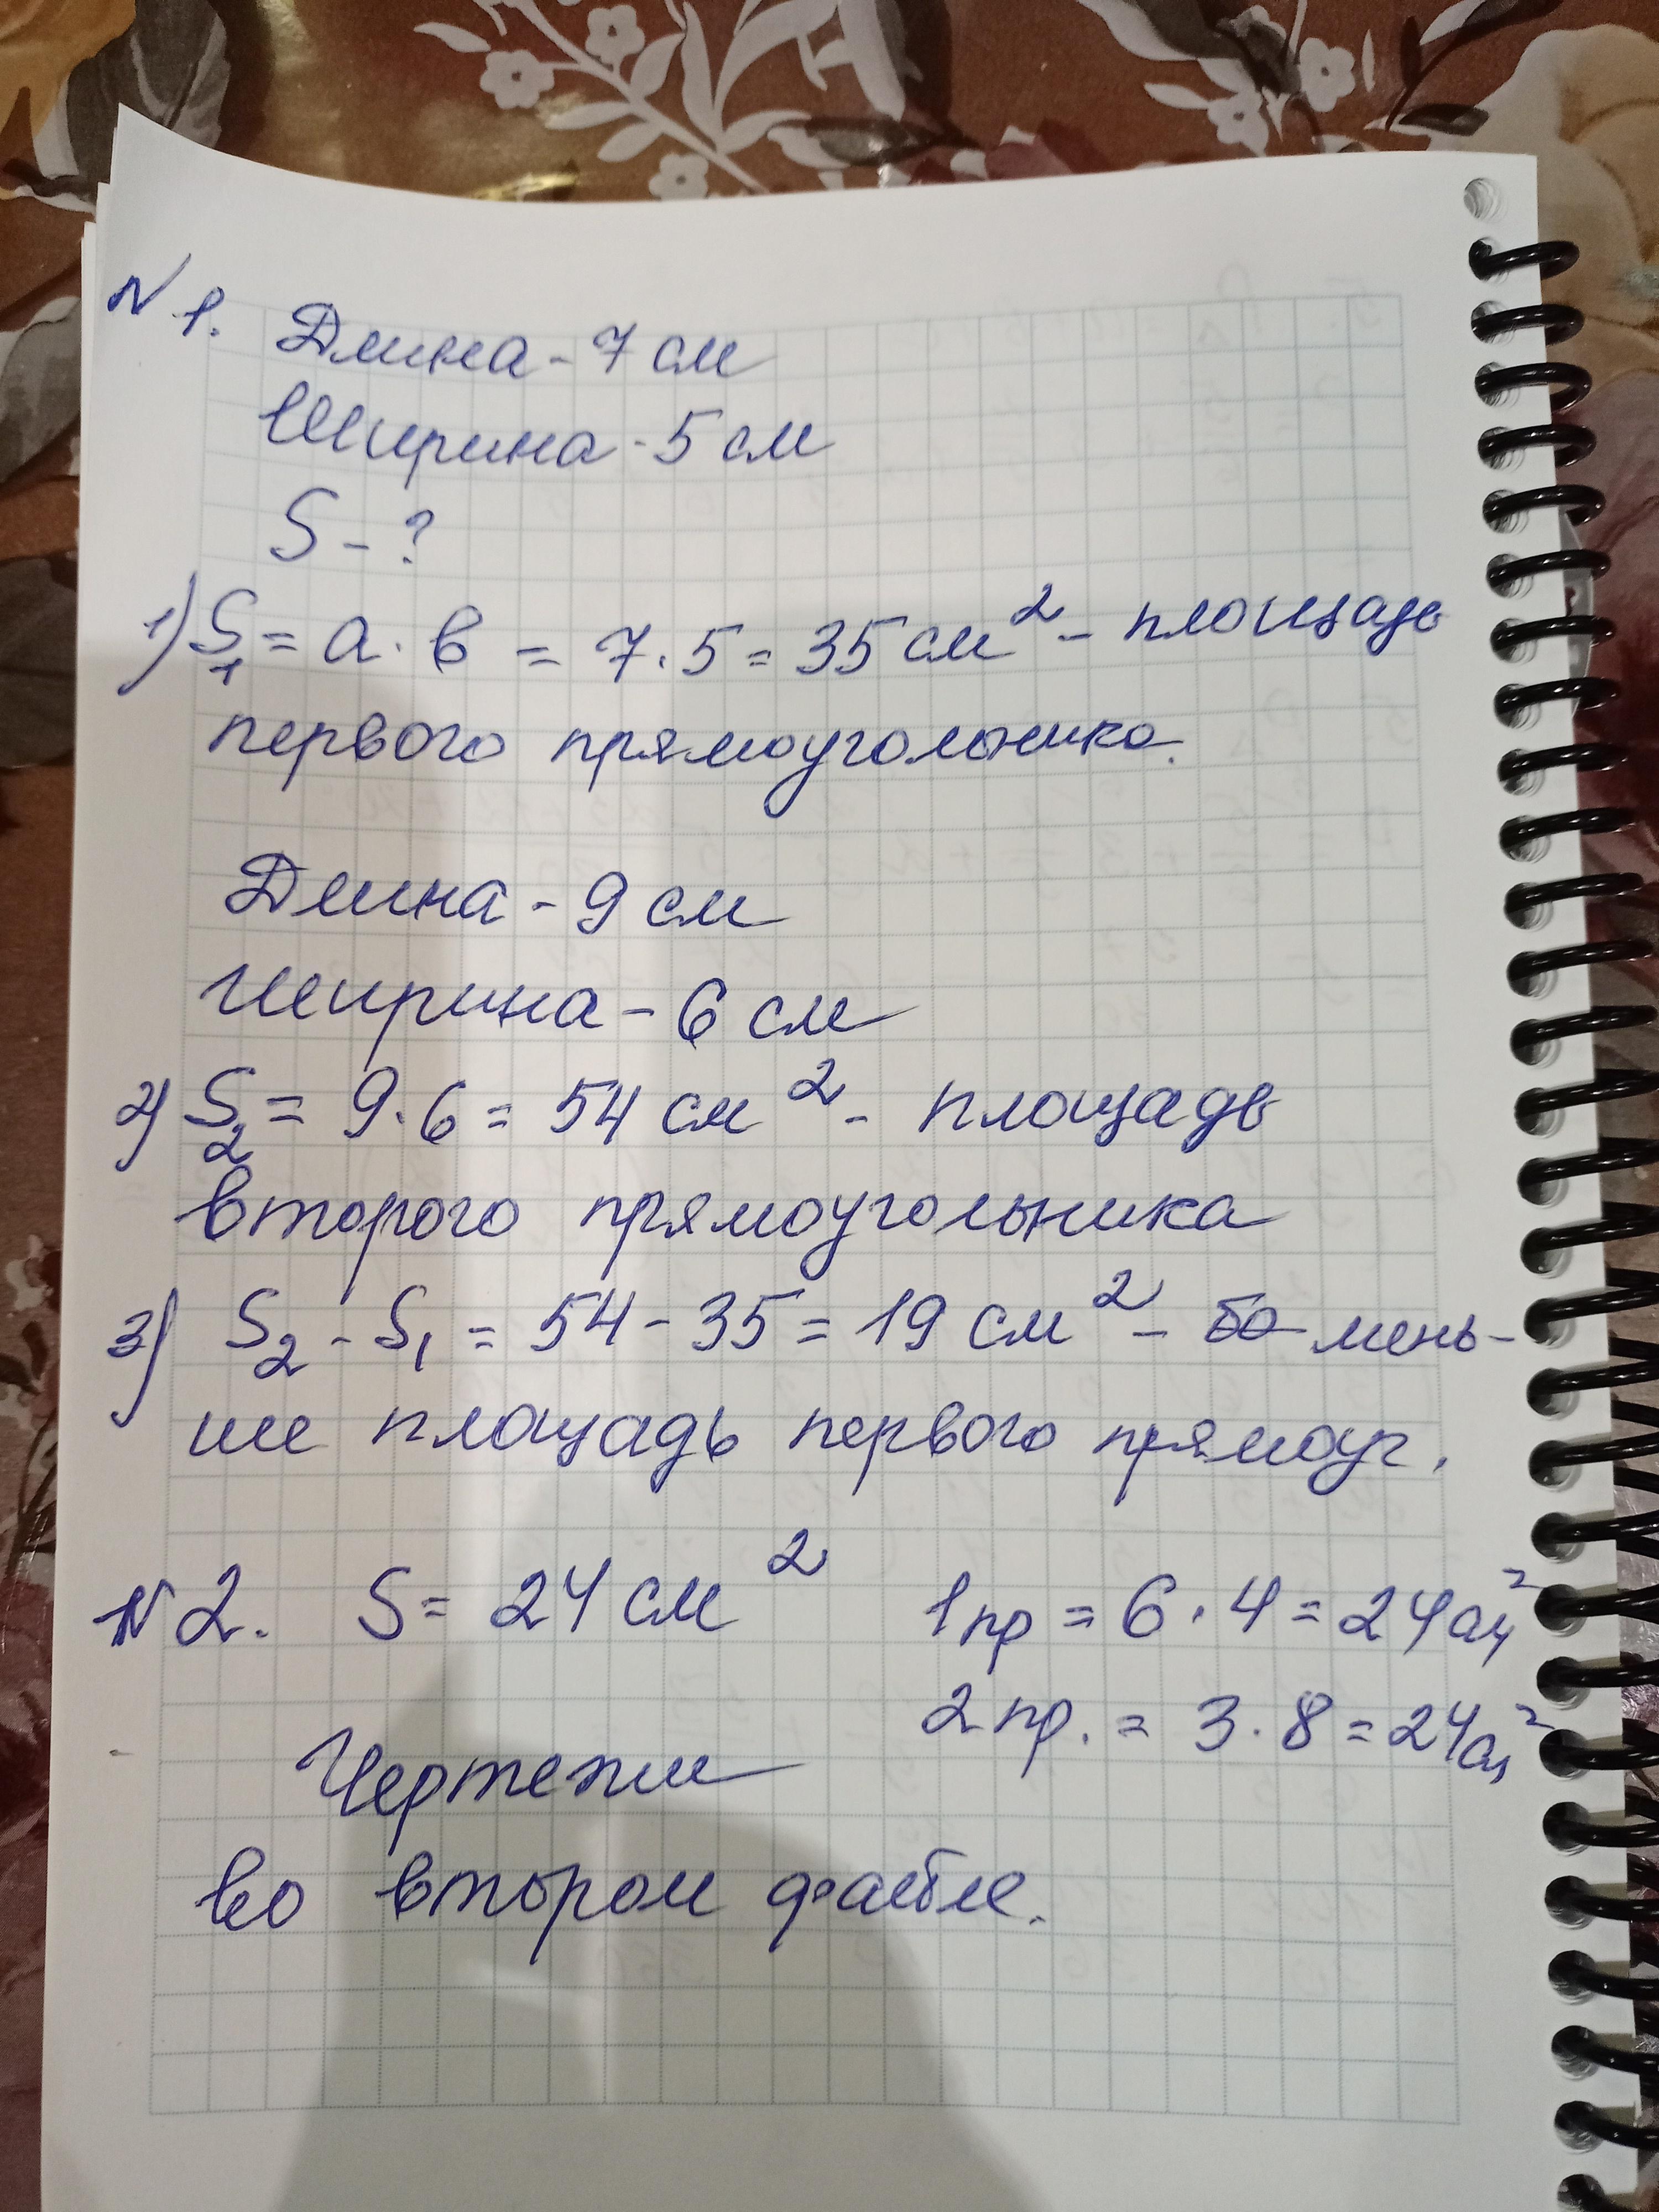 N 1. Длина - 7 см
Ширина - 5 см
S - ?
1) S₁ = a · в = 7 · 5 = 35 см² - площадь
первого прямоугольника.
Длина - 9 см
Ширина - 6 см
2) S₂ = 9 · 6 = 54 см² - площадь
второго прямоугольника
3) S₂ - S₁ = 54 - 35 = 19 см² - бо мень-
ше площадь первого прямоуг.
N 2. S = 24 см² 1 пр = 6 · 4 = 24 см²
2 пр. = 3 · 8 = 24 см²
Чертежи
во втором файле.